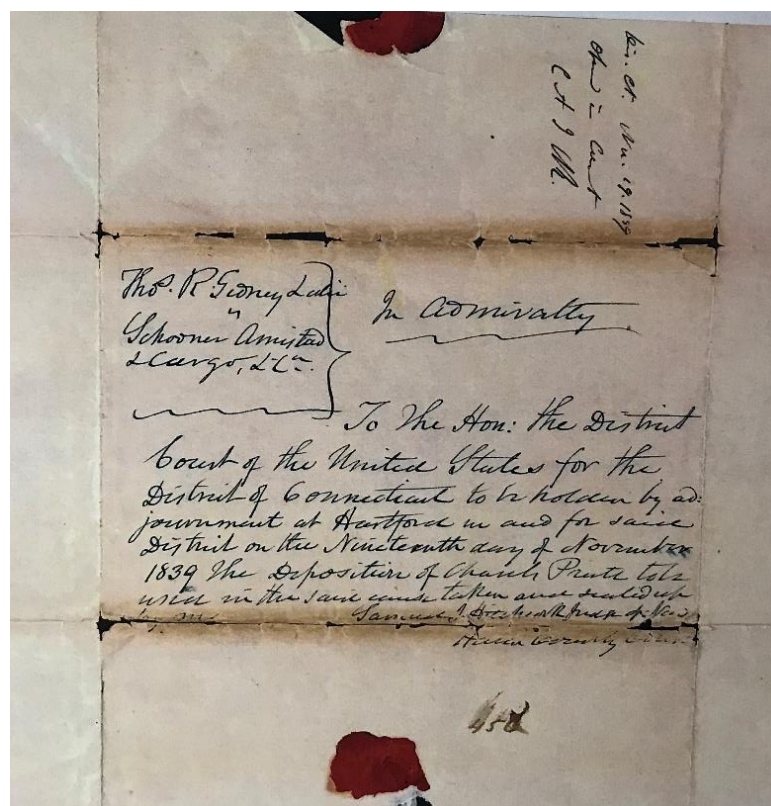 Dis. Ct. Nov. 19. 1839
Opend in Court
C A I
Thos. R. Gedney & als
vs
Schooner Amistad
& Cargo, &c.
In Admiralty
To The Hon: the District
Court of the United States for the
District of Connecticut to be holden by ad:
journment at Hartford in and for said
District on the Nineteenth day of November
1839 The Deposition of Charles Pratt to be
used in the said cause taken and sealed up
by me Samuel J. Hitchcock Judge of New
Haven County Court